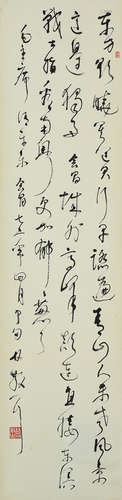 东方欲晓莫道君行早踏遍青山人未老风景
这边独好会昌城外高峰颠连直接东溟
战士指看南粤更加郁郁葱葱
毛主席清平乐会昌 年四月 林散之